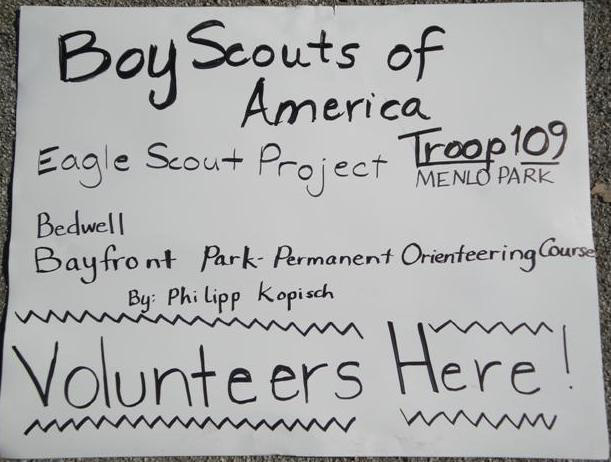 Boy Scouts of
America
Eagle Scout Project Troop 109
MENLO PARK
Bedwell
Bayfront Park - Permanent Orienteering Course
By: Philipp Kopisch
Volunteers Here!